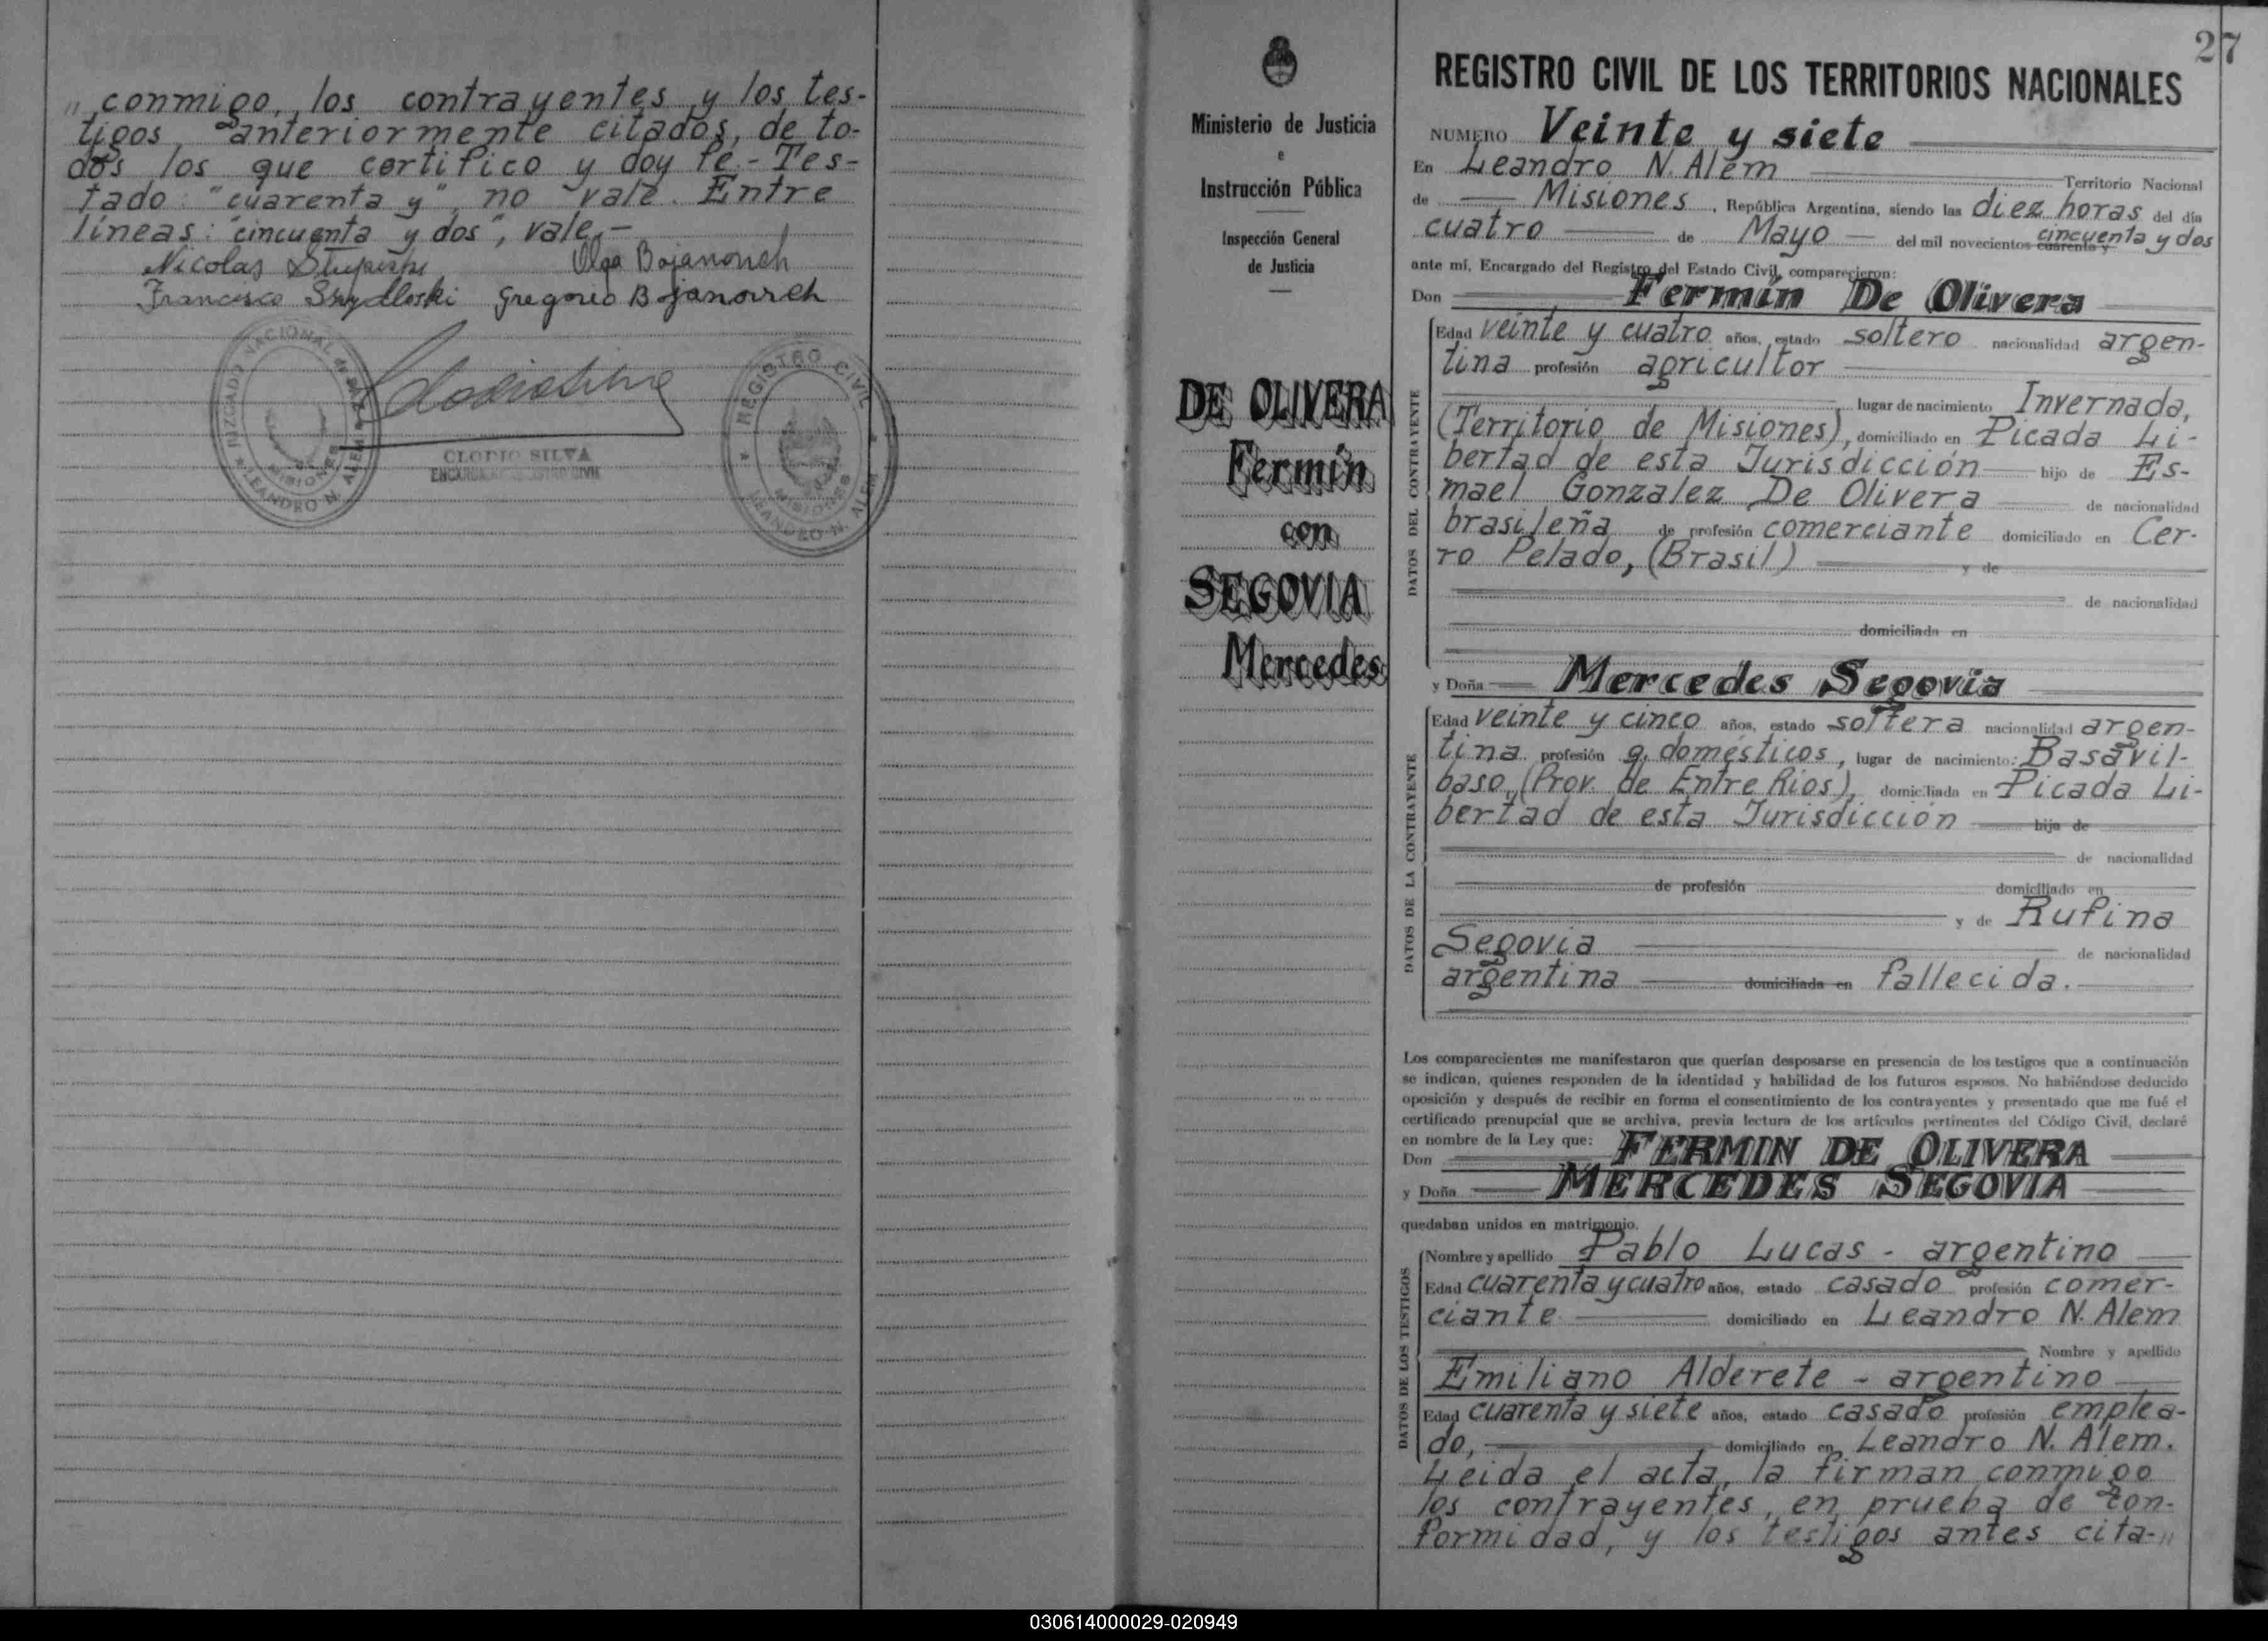 " conmigo, los contrayentes y los tes-
tigos anteriormente citados, de to-
dos los que certifico y doy fe.- Tes-
tado: "cuarenta y", no vale. Entre
líneas: "cincuenta y dos", vale.-
Nicolas Olga Bojanovich
Francisco Szydloski Gregorio Bojanovich
JUZGADO NACIONAL de PAZ
LEANDRO N. ALEM
MISIONES
REGISTRO CIVIL
MISIONES
LEANDRO N. ALEM
CLODIO SILVA
ENCARGADO REGISTRO CIVIL
Ministerio de Justicia
e
Instrucción Pública
Inspección General
de Justicia
DE OLIVERA
Fermín
con
SEGOVIA
Mercedes
27
REGISTRO CIVIL DE LOS TERRITORIOS NACIONALES
NUMERO Veinte y siete
En Leandro N. Alem Territorio Nacional
de Misiones, República Argentina, siendo las diez horas del día
cuatro de Mayo del mil novecientos cuarenta y cincuenta y dos
ante mí, Encargado del Registro del Estado Civil, comparecieron:
Don Fermín De Olivera
DATOS DEL CONTRAYENTE
Edad veinte y cuatro años, estado soltero nacionalidad argen-
tina profesión agricultor
lugar de nacimiento Invernada,
(Territorio de Misiones), domiciliado en Picada Li-
bertad de esta Jurisdicción hijo de Es-
mael Gonzalez De Olivera de nacionalidad
brasileña de profesión comerciante domiciliado en Cer-
ro Pelado, (Brasil) y de
de nacionalidad
domiciliada en
y Doña Mercedes Segovia
DATOS DE LA CONTRAYENTE
Edad veinte y cinco años, estado soltera nacionalidad argen-
tina profesión q. domésticos, lugar de nacimiento: Basavil-
baso, (Prov. de Entre Ríos), domiciliada en Picada Li-
bertad de esta Jurisdicción hija de
de nacionalidad
de profesión domiciliado en
y de Rufina
Segovia de nacionalidad
argentina domiciliada en fallecida.
Los comparecientes me manifestaron que querían desposarse en presencia de los testigos que a continuación
se indican, quienes responden de la identidad y habilidad de los futuros esposos. No habiéndose deducido
oposición y después de recibir en forma el consentimiento de los contrayentes y presentado que me fué el
certificado prenupcial que se archiva, previa lectura de los artículos pertinentes del Código Civil, declaré
en nombre de la Ley que:
Don FERMIN DE OLIVERA
y Doña MERCEDES SEGOVIA
quedaban unidos en matrimonio.
DATOS DE LOS TESTIGOS
Nombre y apellido Pablo Lucas - argentino
Edad cuarenta y cuatro años, estado casado profesión comer-
ciante domiciliado en Leandro N. Alem
Nombre y apellido
Emiliano Alderete - argentino
Edad cuarenta y siete años, estado casado profesión emplea-
do, domiciliado en Leandro N. Alem.
Leida el acta, la firman conmigo
los contrayentes, en prueba de con-
formidad, y los testigos antes cita- "
030614000029-020949